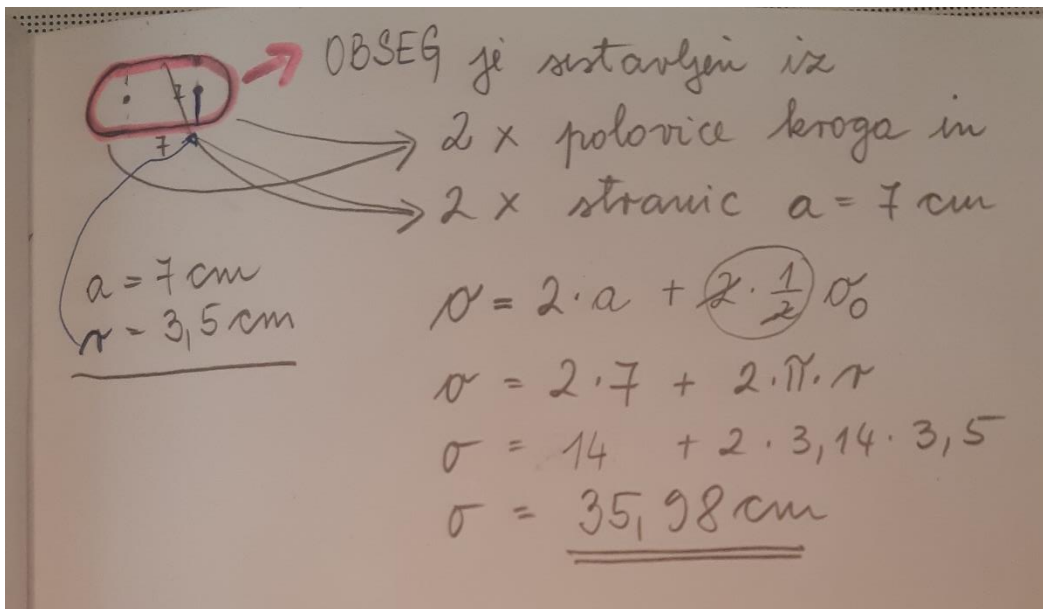 OBSEG je sestavljen iz
2 x polovice kroga in
2 x stranic a = 7 cm
7
7
a = 7 cm
r = 3,5 cm
o = 2 · a + 2 · 1/2 o₀
o = 2 · 7 + 2 · π · r
o = 14 + 2 · 3,14 · 3,5
o = 35,98 cm